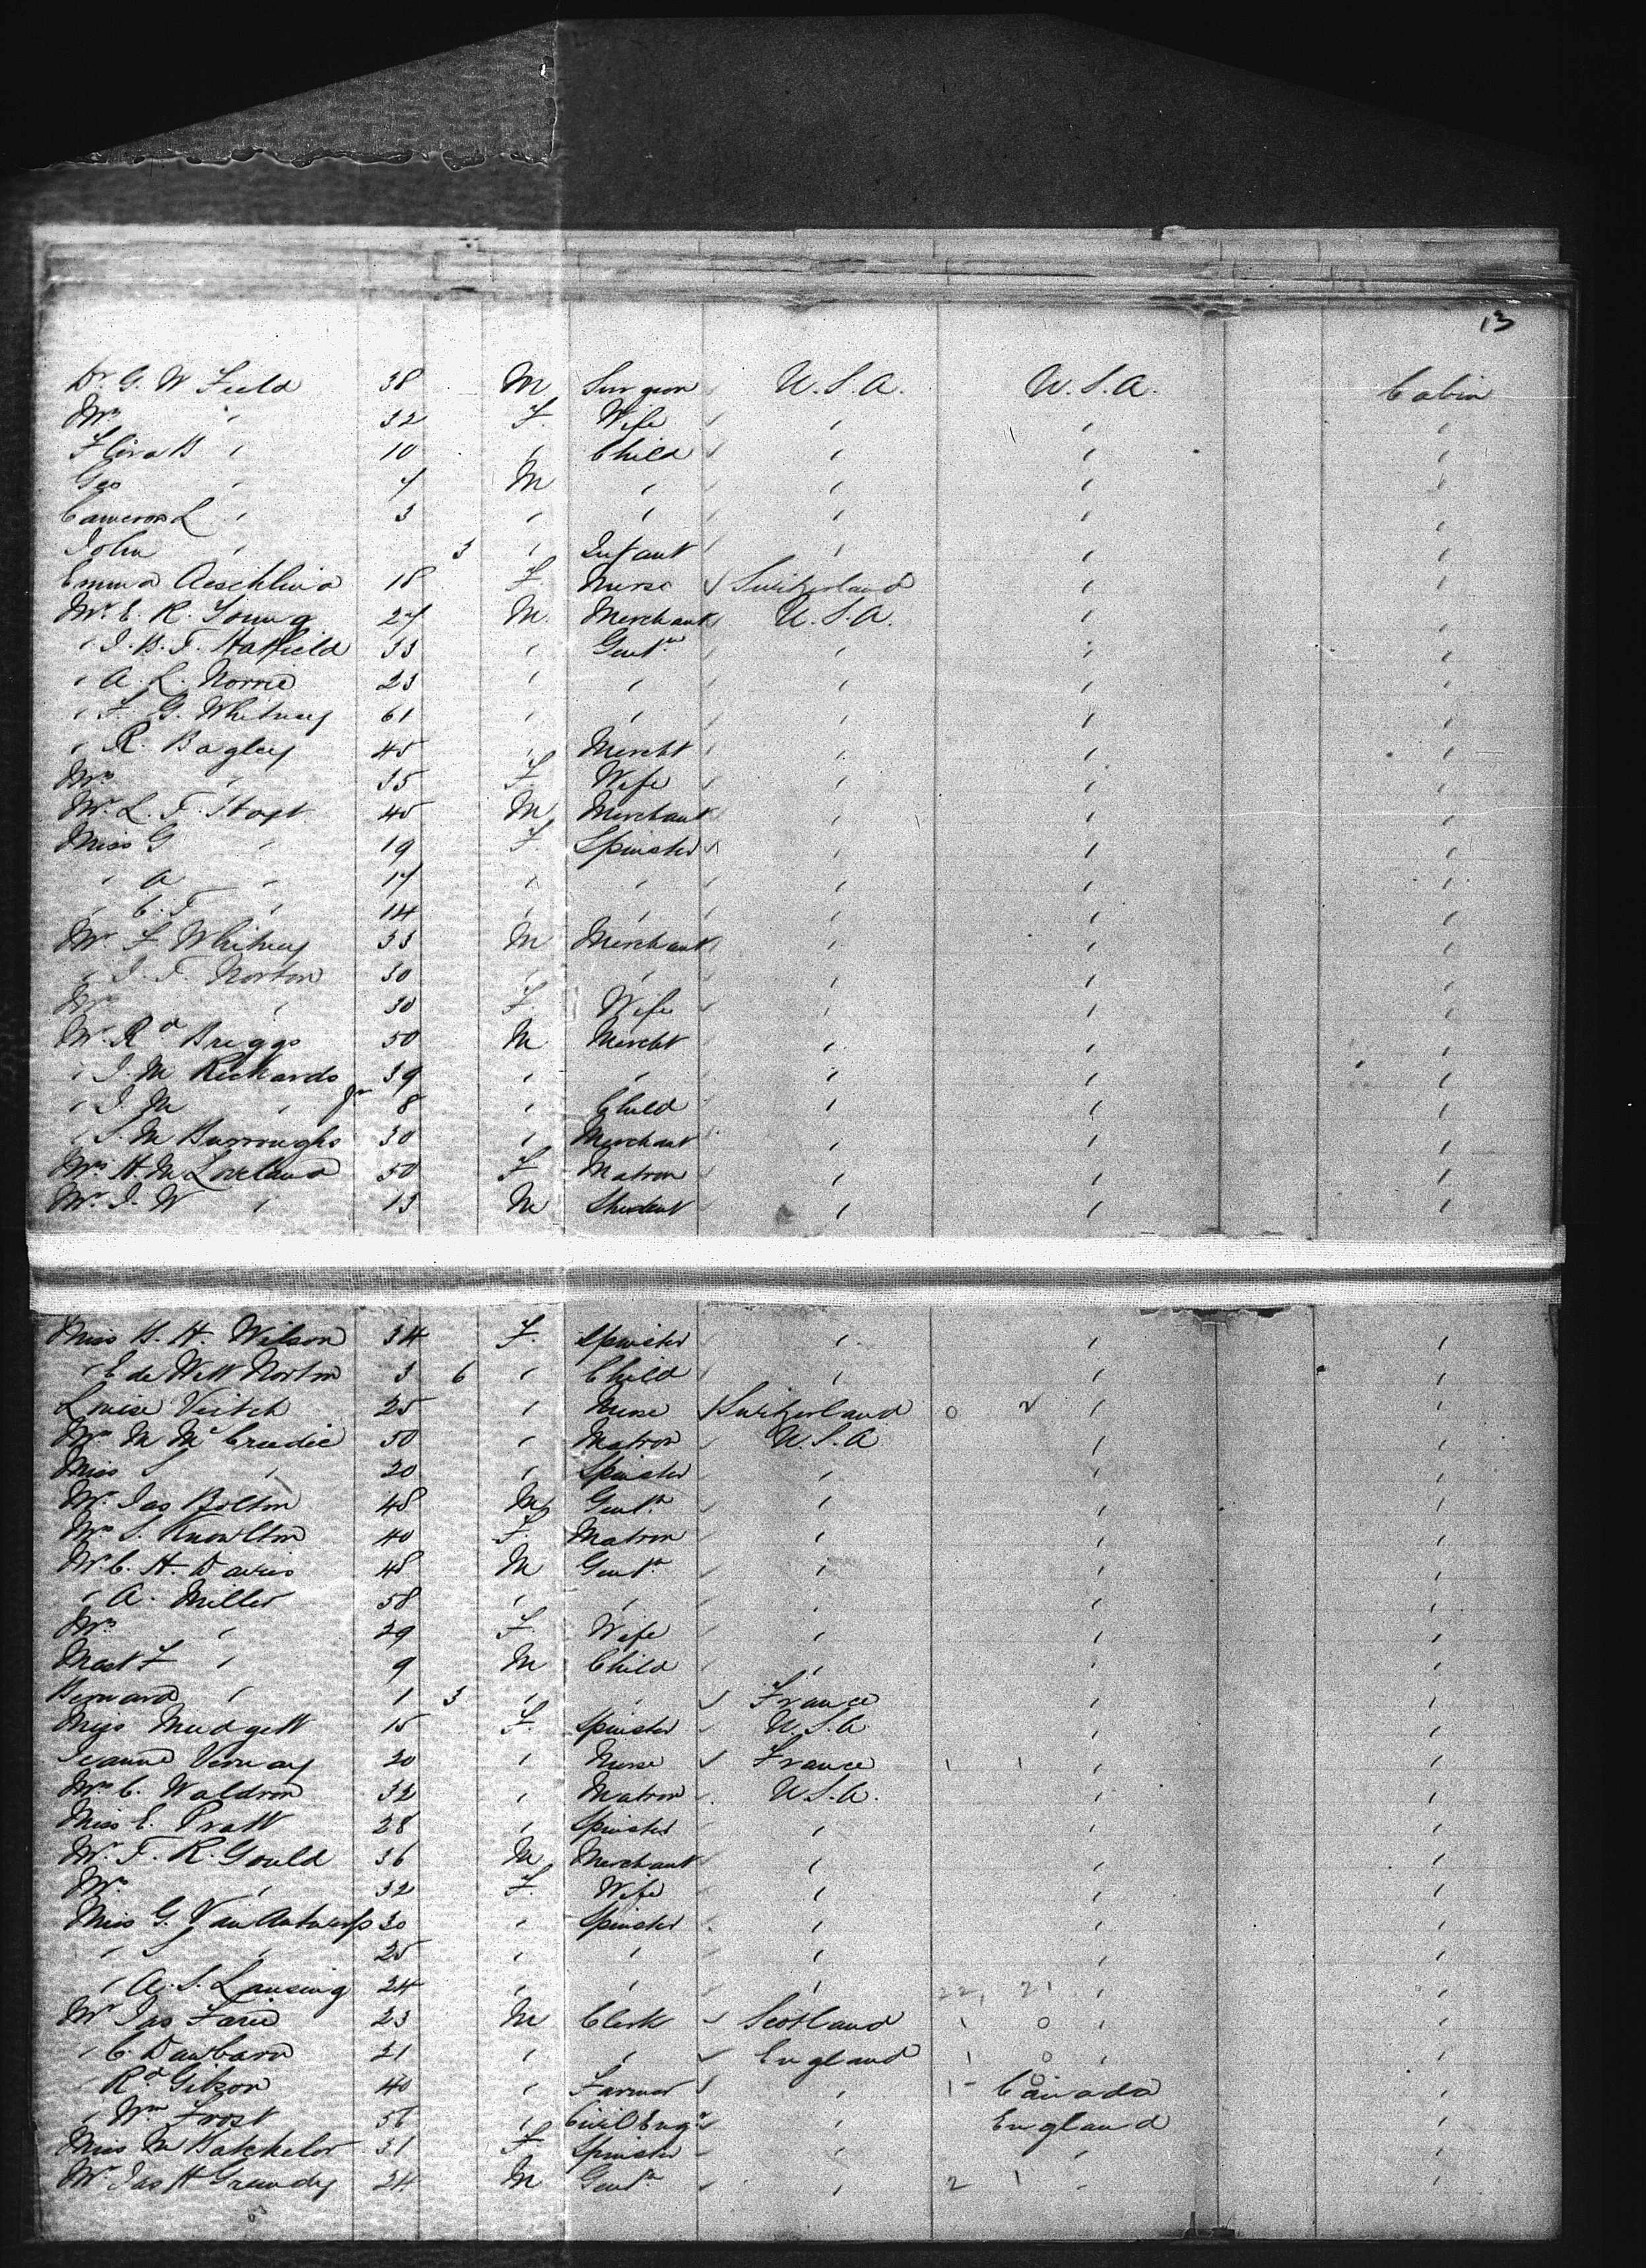 13
Dr G. W Field 38 M Surgeon U.S.A. U.S.A. Cabin
Mrs " 32 F. Wife " " "
Flora B " 10 " Child " " "
Geo " 7 M " " " "
Cameron L " 3 " " " " "
John " 3 " Infant " " "
Emma 18 F. Nurse Switzerland " "
Mr E. R. Young 27 M. Merchant U.S.A. " "
" J. B. T. Hatfield 33 " Gentn " " "
" A. L. Norrie 23 " " " " "
" F. G. Whitney 61 " " " " "
" R. Bagley 45 " Mercht " " "
Mrs " 35 F Wife " " "
Mr L. F. Hoyt 45 M Merchant " " "
Miss G " 19 F Spinster " " "
" A " 17 " " " " "
" C. T " 14 " " " " "
Mr F Whitney 33 M Merchant " " "
" J. T. Norton 30 " " " " "
Mrs " 30 F. Wife " " "
Mr Rd Briggs 50 M Mercht " " "
" J. M Richards 39 " " " " "
" J. M " Jr 8 " Child " " "
" S. M Burroughs 30 " Merchant " " "
Mrs H. M Loveland 50 F Matron " " "
Mr J. W " 13 M Student " " "
Miss B. H. Wilson 34 F. Spinster " " "
" E de Witt Norton 3 6 " Child " " "
Louise Veitch 25 " Nurse Switzerland 0 2 " "
Mrs M McCreedie 50 " Matron U.S.A " "
Miss S " 20 " Spinster " " "
Mr Jas Bolton 48 M Gentn " " "
Mrs S. Knowlton 40 F. Matron " " "
Mr C. H. Davis 48 M Gentn " " "
" A. Miller 58 " " " " "
Mrs " 29 F. Wife " " "
Mast F " 9 M Child " " "
Bernard " 1 3 " " France " "
Miss Mudgett 15 F. Spinster U.S.A. " "
Jeanne Vernay 20 " Nurse France 1 1 " "
Mrs C. Waldron 32 " Matron U.S.A. " "
Miss E. Pratt 28 " Spinster " " "
Mr T. R. Gould 36 M Merchant " " "
Mrs " 32 F. Wife " " "
Miss G. Van Antwerp 30 " Spinster " " "
" S " 25 " " " " "
" A. S. Lansing 24 " " " 22 21 " "
Mr Jas Farie 23 M Clerk Scotland 1 0 " "
" C. Dawbarn 21 " " England 1 0 " "
" Rd Gibson 40 " Farmer " 1 Canada
" Wm Frost 56 " Civil Engr " England "
Miss M Batchelor 31 F Spinster " " "
Mr Jas H Grundy 24 M Gentn " 2 1 " "